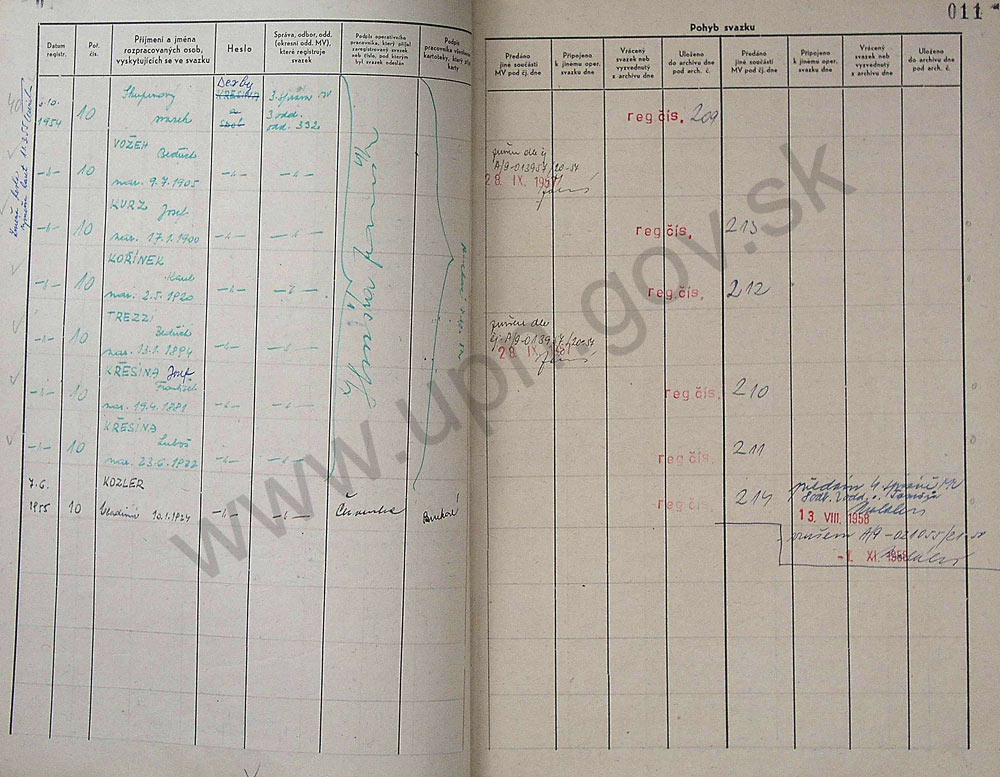 011
Pohyb svazku
Datum registr.
Poř. čís.
Příjmení a jména rozpracovaných osob, vyskytujících se ve svazku
Heslo
Správa, odbor, odd. (okresní odd. MV), které registruje svazek
Podpis operativního pracovníka, který přijal zaregistrovaný svazek neb číslo, pod kterým byl svazek odeslán
Podpis pracovníka
kartoteky, který
karty
Předáno jiné součásti MV pod čj. dne
Připojeno k jinému oper. svazku dne
Vrácený svazek neb vyzvednutý z archivu dne
Uloženo do archivu dne pod arch. č.
Předáno jiné součásti MV pod čj. dne
Připojeno k jinému oper. svazku dne
Vrácený svazek neb vyzvednutý z archivu dne
Uloženo do archivu dne pod arch. č.
1954
10
Skupinový
svazek
Derby
KŘESINA
a
spol
3. správa MV
3 odd.
odd. 332
reg čís. 209
10
VOŽEH
Bedřich
nar. 9.7.1905
zrušen dle čj
A/9-013957/20-57
28. IX. 1957
10
KURZ Josef
nar. 17.1.1900
reg čís. 213
10
KOŘÍNEK
Karel
nar. 2.5.1920
reg čís. 212
10
TREZZI
Bedřich
nar. 13.1.1894
zrušen dle
čj. A/9-013957/20-57
28. IX. 1957
10
KŘESINA Josef
František
nar. 19.4.1881
reg čís. 210
10
KŘESINA
Luboš
nar. 23.6.1922
reg čís. 211
7.6.
1955
10
KOZLER
Vladimír 10.1.1924
Červenka
reg čís. 214
předán 4. správě MV
13. VIII. 1958
zrušen A/9-021055/21-58
-1. XI. 1958
www.upn.gov.sk